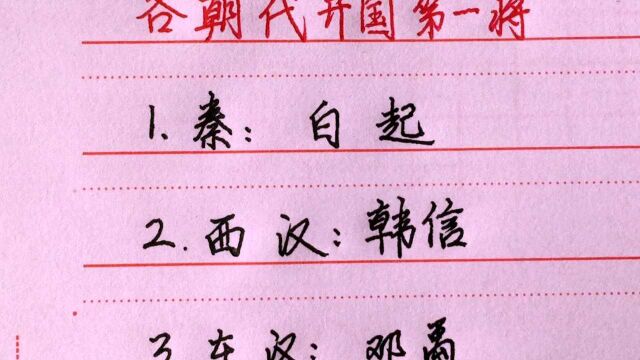 各朝代开国第一将
1.秦：白起
2.西汉：韩信
3.东汉：邓禹